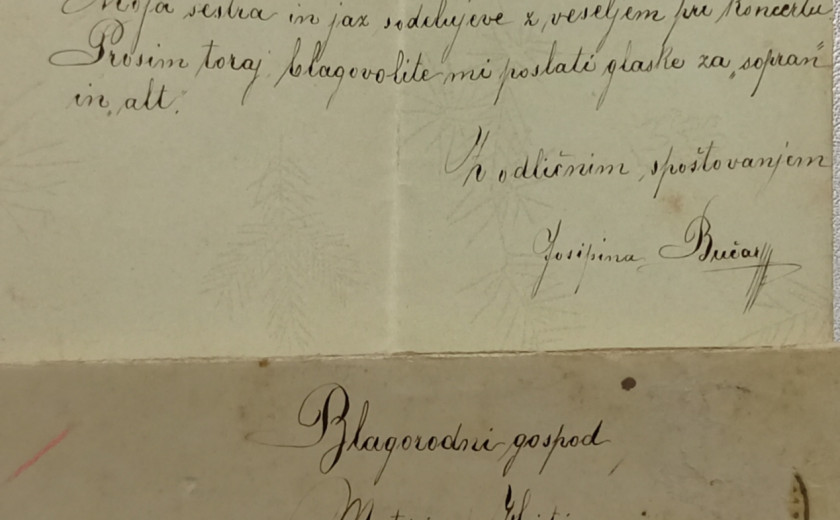 Moja sestra in jaz sodelujeve z veseljem pri koncertu
Prosim toraj blagovolite mi poslati glaske za „sopran“
in alt.
Z odličnim spoštovanjem
Josipina Bučar
Blagorodni gospod